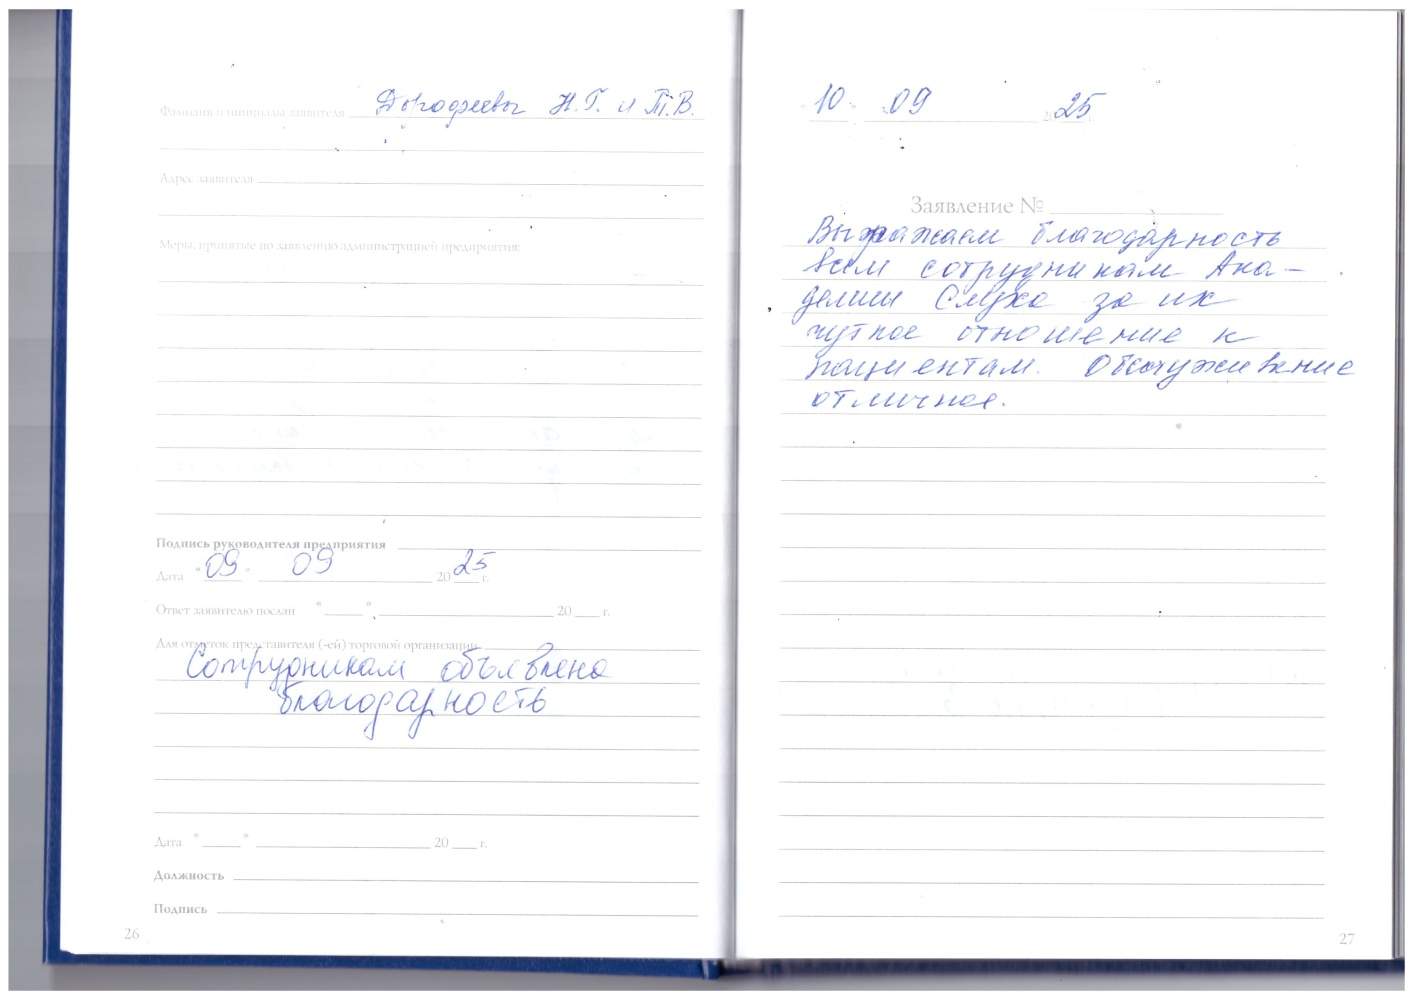 Фамилия и инициалы заявителя Дорофеевы Н.Г. и Т.В.
Адрес заявителя
Меры, принятые по заявлению администрацией предприятия:
Подпись руководителя предприятия
Дата "09" 09 2025 г.
Ответ заявителю послан " " 20 г.
Для отметок представителя (-ей) торговой организации
Сотрудникам объявлена
благодарность
Дата " " 20 г.
Должность
Подпись
26
10 09 2025
Заявление №
Выражаем благодарность
всем сотрудникам Ака-
демии Слуха за их
чуткое отношение к
пациентам. Обслуживание
отличное.
27